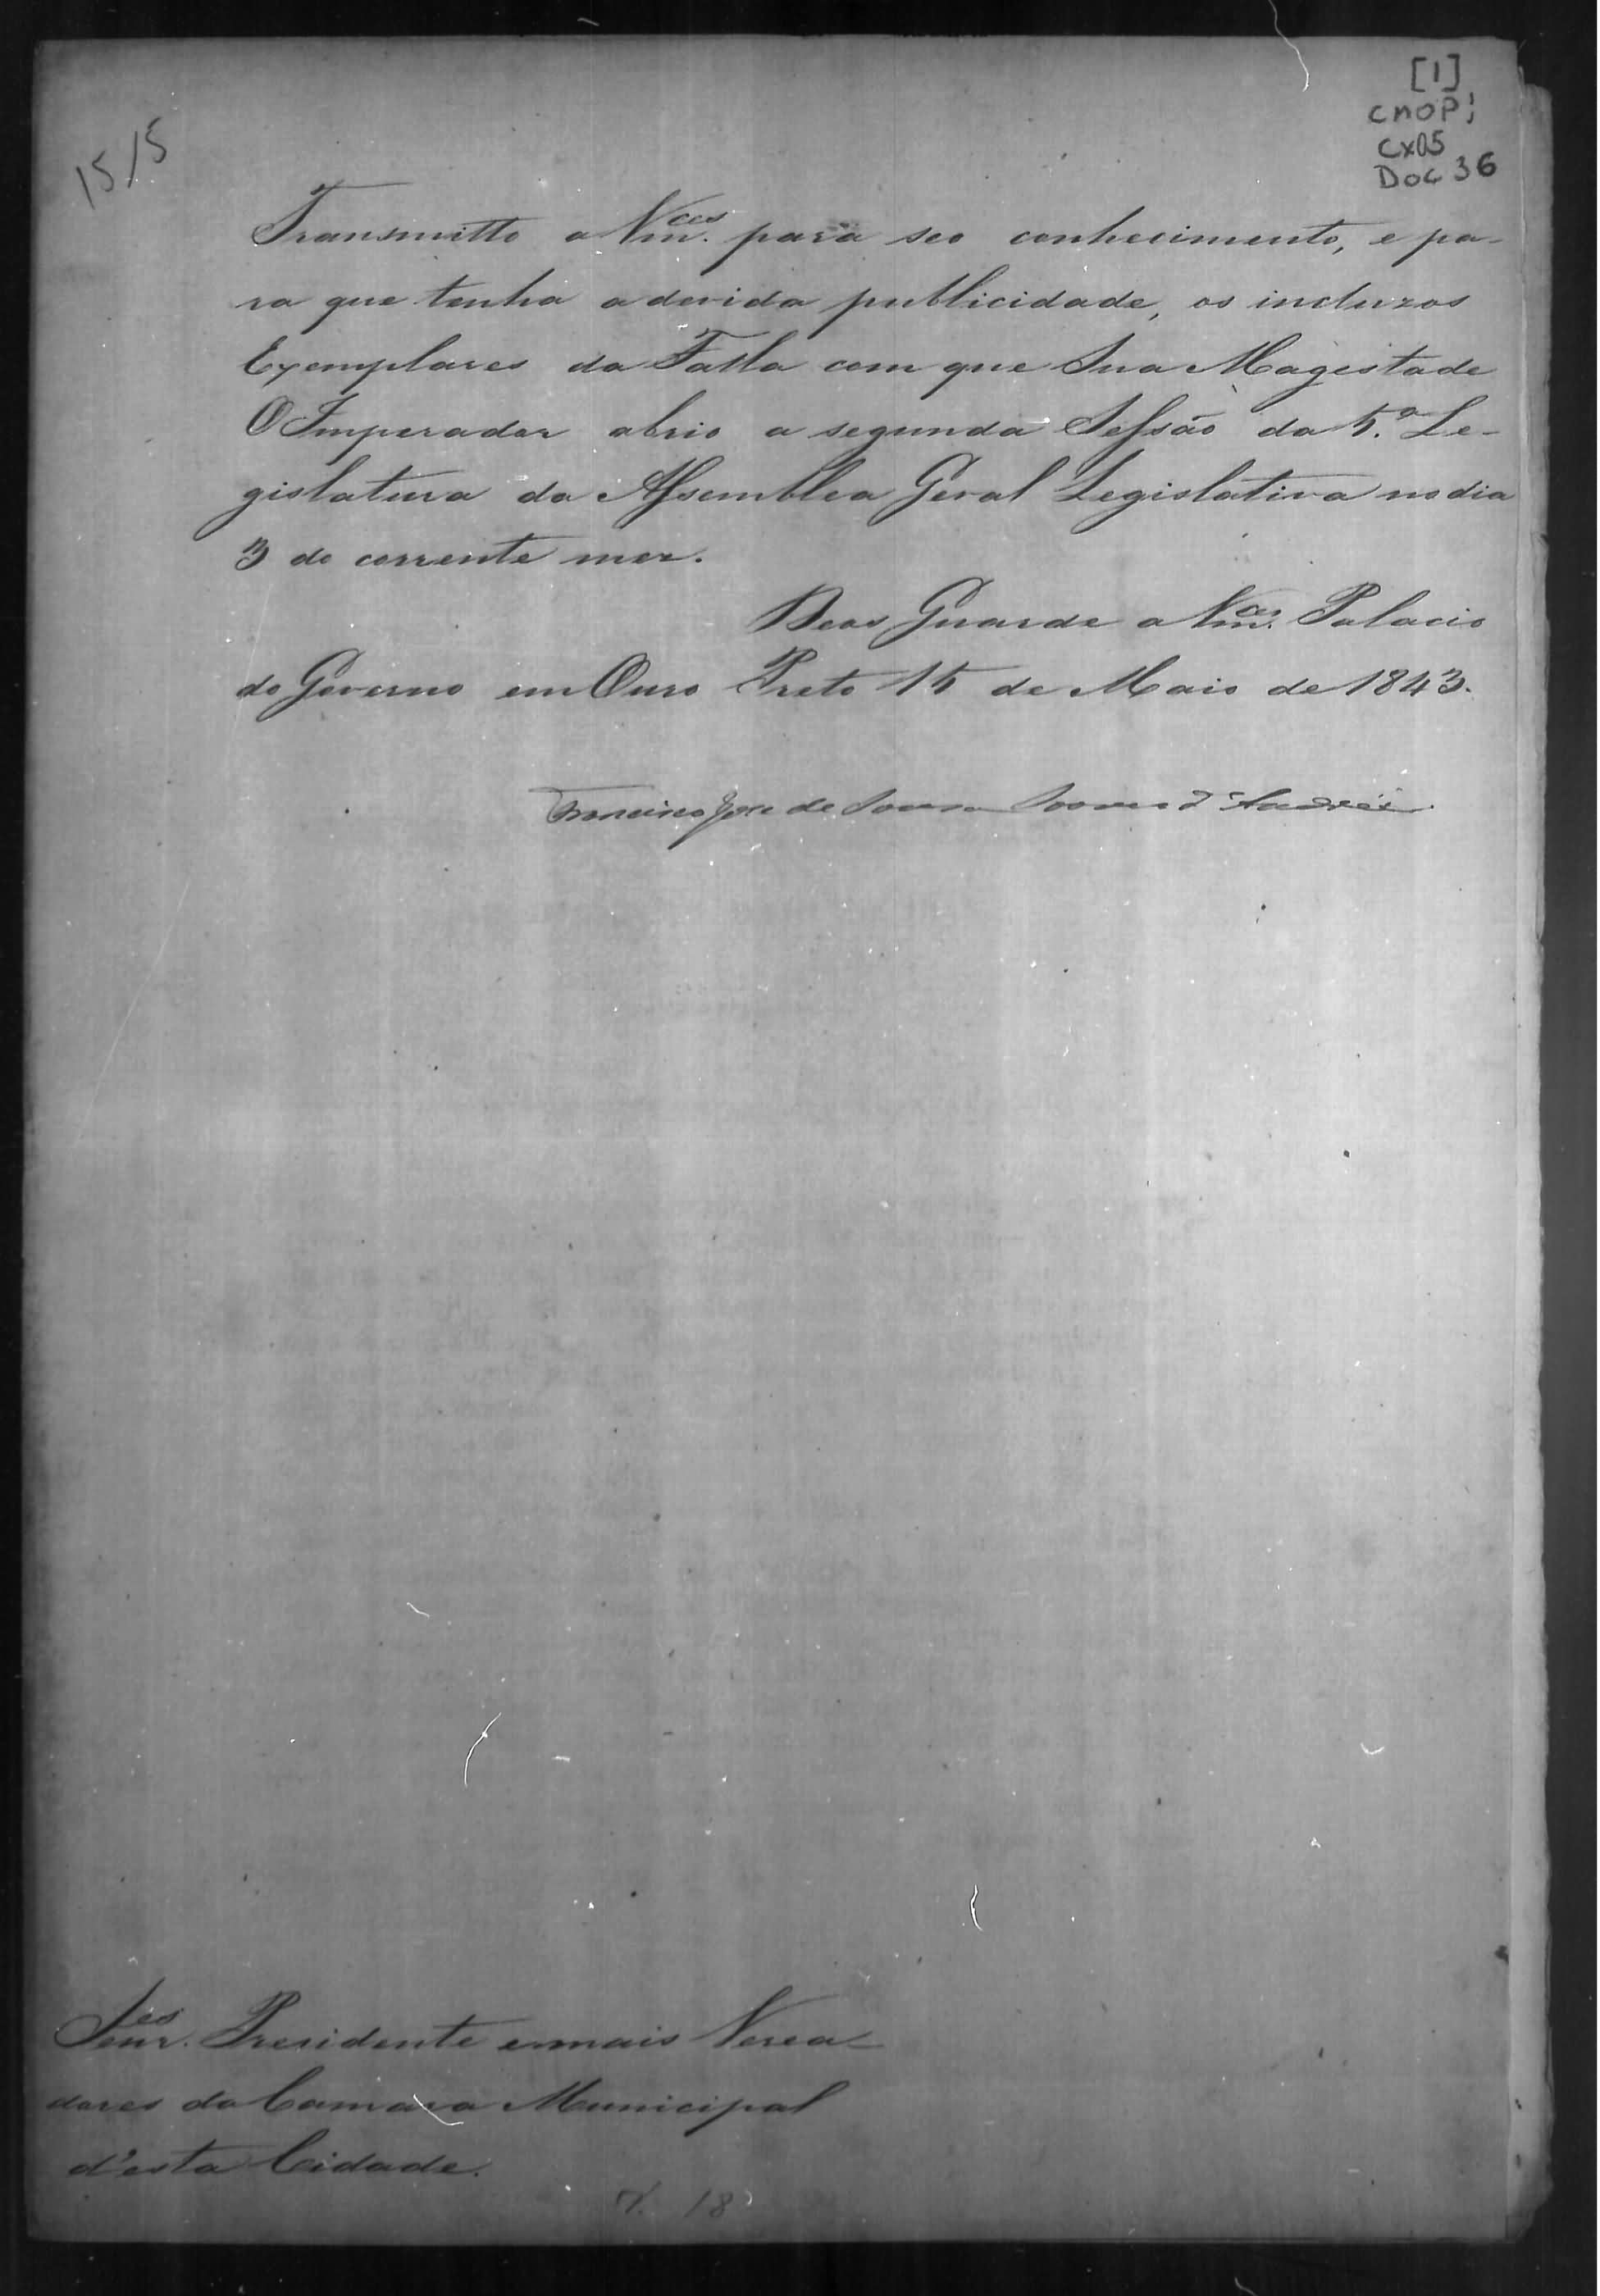 [1]
CMOPi
CX05
DOC 36
15/5
Transmitto a Vm.ces para seo conhecimento, e pa-
ra que tenha a devida publicidade, os incluzos
Exemplares da Falla com que Sua Magestade
O Imperador abrio a segunda Sessão da 5.ª Le-
gislatura da Assemblea Geral Legislativa no dia
3 do corrente mez.
Deos Guarde a Vm.ces Palacio
do Governo em Ouro Preto 15 de Maio de 1843.
Francisco José de Souza Soares d'Andréa
Senr.es Presidente e mais Verea-
dores da Camara Municipal
d'esta Cidade.
18